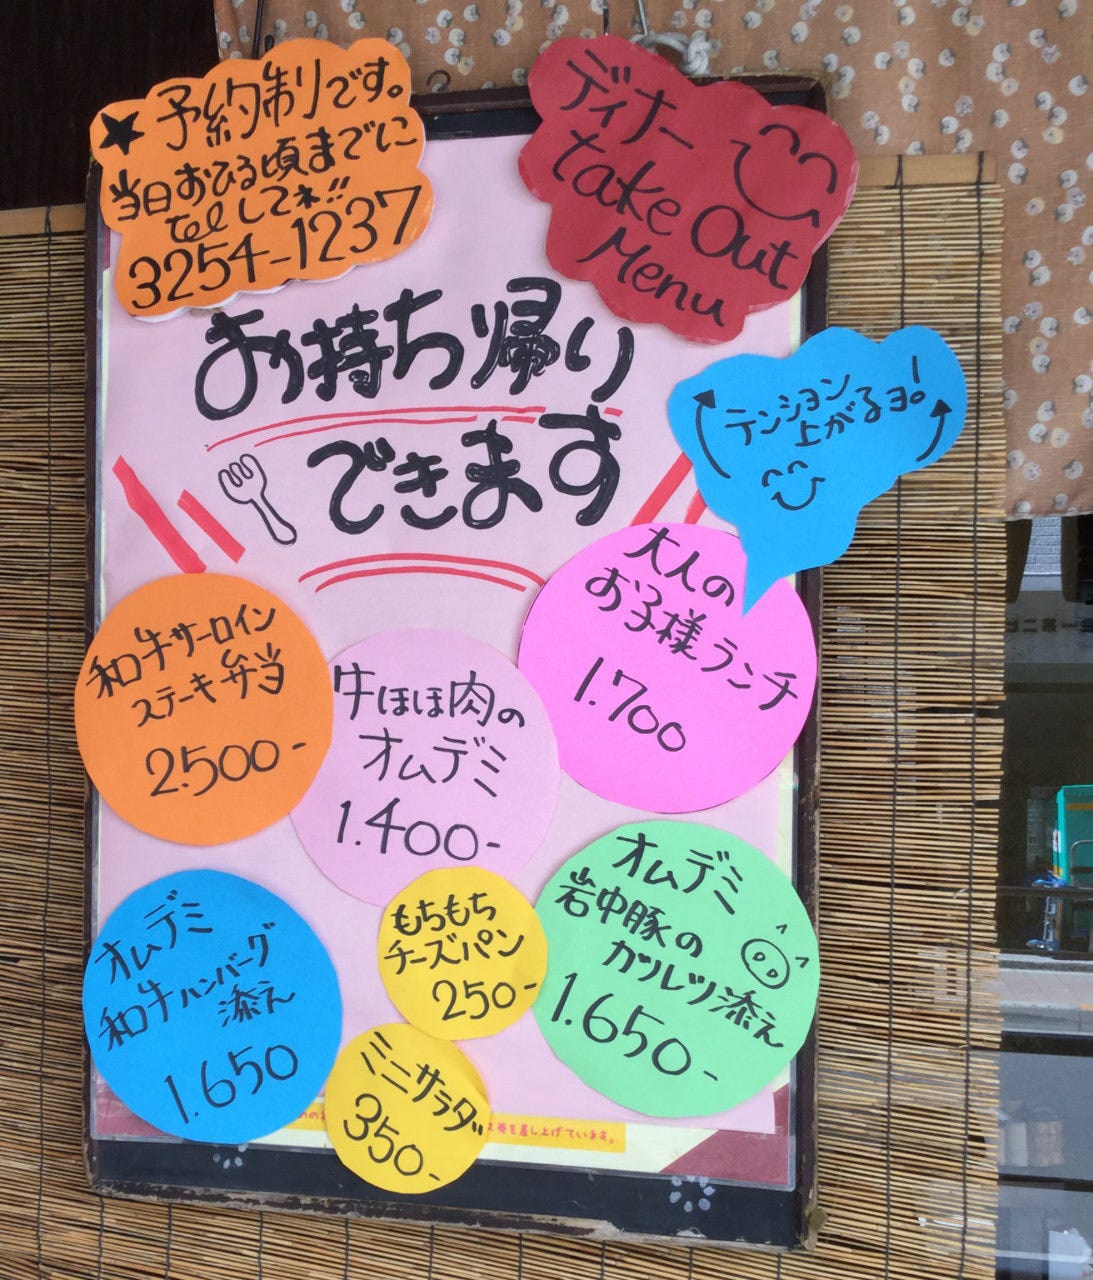 ★予約制です。
当日おひる頃までに
telしてネ!!
3254-1237
ディナー
take Out
Menu
お持ち帰り
できます
テンション
上がるヨ。!
大人の
お子様ランチ
1.700
和牛サーロイン
ステーキ弁当
2.500-
牛ほほ肉の
オムデミ
1.400-
オムデミ
岩中豚の
カツレツ添え
1.650-
もちもち
チーズパン
250-
オムデミ
和牛ハンバーグ
添え
1.650
ミニサラダ
350-
を差し上げています。